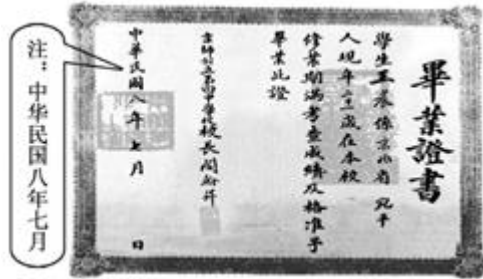 畢業證書
學生王 係京兆省 宛平
人現年 歲在本校
修業期滿考查成績及格准予
畢業此證
校長閻
中華民國八年七月 日
注：中华民国八年七月